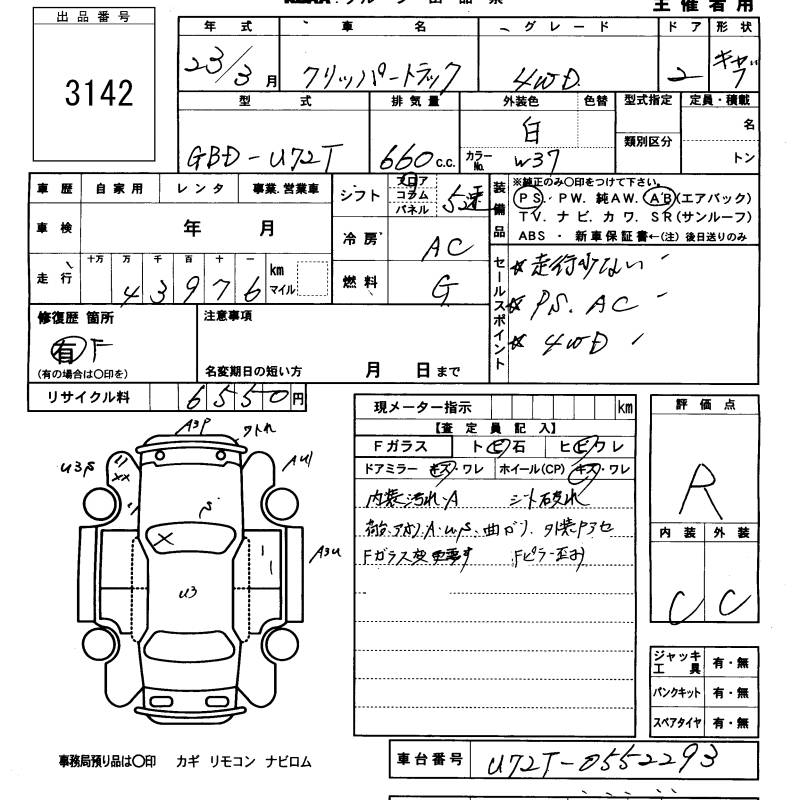 主催者用
出品番号
3142
年式 車名 グレード ドア 形状
23/3月 クリッパートラック 4WD 2
型式 排気量 外装色 色替 型式指定 定員・積載
GBD-U72T 660c.c. 白 カラーNo. W37 類別区分 名
トン
車歴 自家用 レンタ 事業.営業車 シフト フロア コラム パネル 5速
装備品 ※純正のみ〇印をつけて下さい。
PS. PW. 純AW. AB(エアバック)
TV. ナビ. カワ. SR(サンルーフ)
ABS ・ 新車保証書←(注) 後日送りのみ
車検 年 月 冷房 AC
走行 十万 万 千 百 十 一 km マイル
43976
燃料 G
セールスポイント
☆走行少ない
☆PS. AC
☆4WD
修復歴 箇所 注意事項
有 F
(有の場合は〇印を) 名変期日の短い方 月 日まで
リサイクル料 6550円
現メーター指示 km
【査定員記入】
Fガラス トビ石 ヒビワレ
ドアミラー キズ・ワレ ホイール(CP) キズ・ワレ
内装汚れ・A シート破れ
Fガラス Fピラー
評価点
R
内装 外装
C C
A3P
U3S
XX
A3U
X
U3
ジャッキ工具 有・無
パンクキット 有・無
スペアタイヤ 有・無
事務局預り品は〇印 カギ リモコン ナビロム
車台番号 U72T-0552293